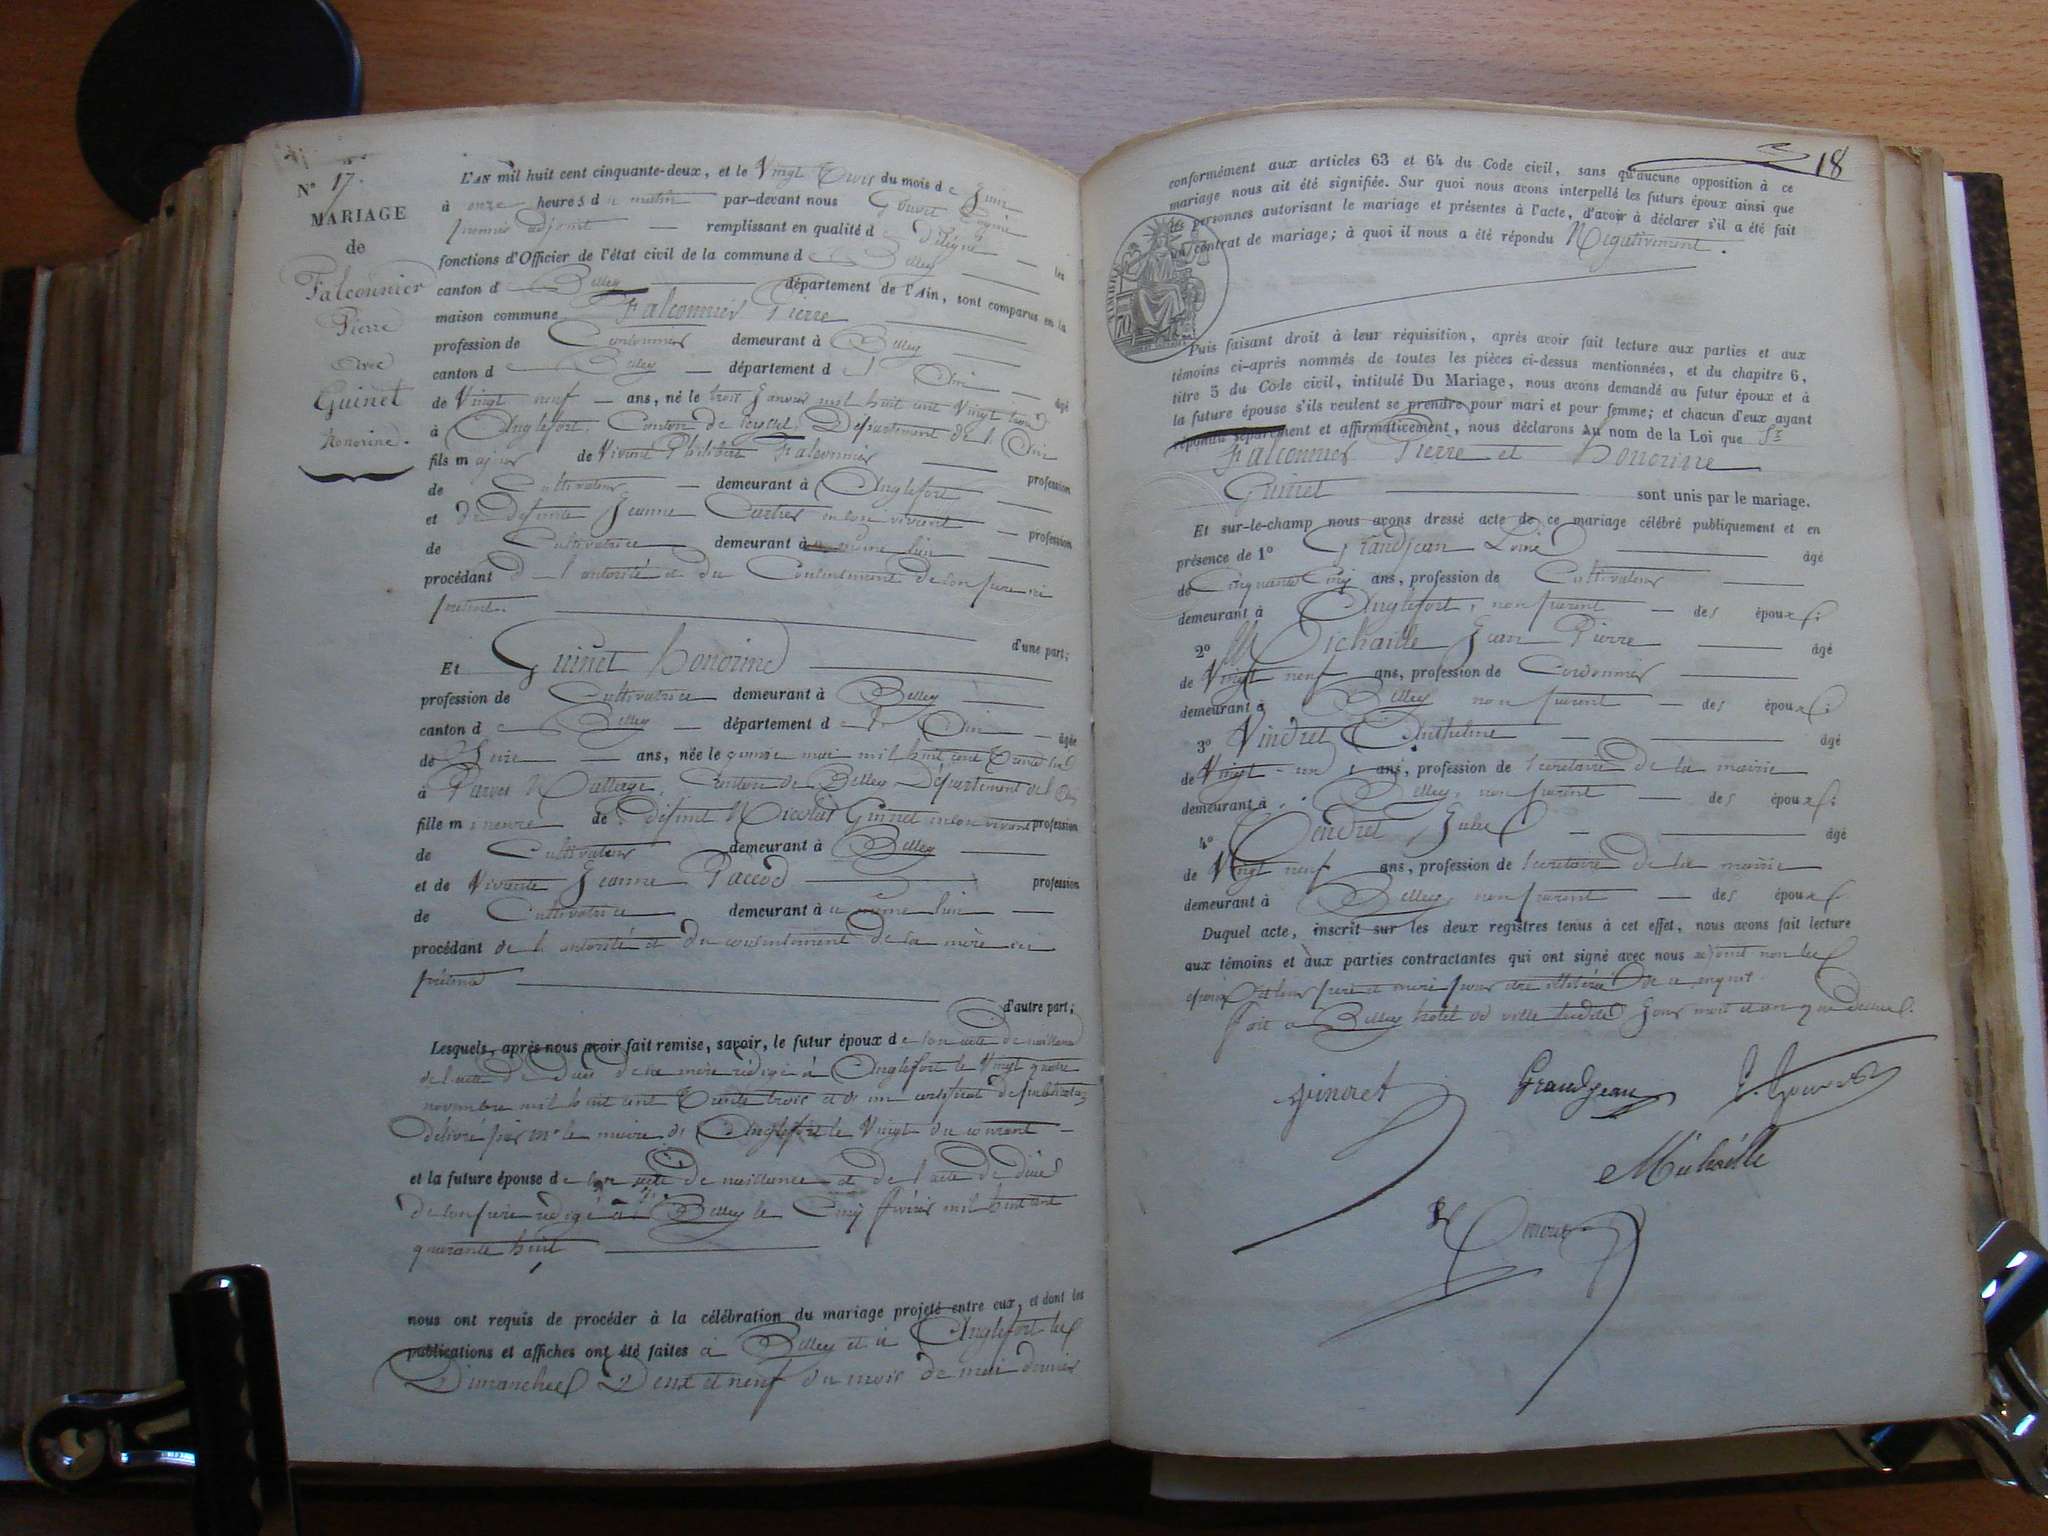 N° 17.
MARIAGE
de
Falconnier
Pierre
avec
Guinet
honorine.
L'AN mil huit cent cinquante-deux, et le Vingt Trois du mois de Juin
à onze heures du matin par-devant nous
premier adjoint remplissant en qualité de délégué les
fonctions d'Officier de l'état civil de la commune de Belley
canton de Belley département de l'Ain, sont comparus en la
maison commune Falconnier Pierre
profession de Cordonnier demeurant à Belley
canton de Belley département de l'Ain âgé
de Vingt neuf ans, né le trois Janvier mil huit cent Vingt trois
à Anglefort, Canton de Seyssel, Département de l'Ain
fils majeur de Vivant Philibert Falconnier profession
de Cultivateur demeurant à Anglefort
et de défunte Jeanne Cartier en son vivant profession
de Cultivatrice demeurant au même lieu
procédant de l'autorité et du Consentement de son père ici
présent. d'une part;
Et Guinet honorine
profession de Cultivatrice demeurant à Belley
canton de Belley département de l'Ain âgée
de Seize ans, née le quinze mai mil huit cent Trente six
à Parves Nattage, Canton de Belley, Département de l'Ain
fille mineure de défunt Nicolas Guinet en son vivant profession
de Cultivateur demeurant à Belley
et de Vivante Jeanne Paccod profession
de Cultivatrice demeurant au même lieu
procédant de l'autorité et du consentement de sa mère ici
présente d'autre part;
Lesquels, après nous avoir fait remise, savoir, le futur époux de son acte de naissance
de l'acte de Décès de sa mère rédigé à Anglefort le Vingt quatre
novembre mil huit cent Trente trois et d'un certificat de publication
Délivré par Mr le maire de Anglefort le Vingt du courant
et la future épouse de son acte de naissance et de l'acte de décès
de son père rédigé à Belley le Cinq février mil huit cent
quarante huit
nous ont requis de procéder à la célébration du mariage projeté entre eux, et dont les
publications et affiches ont été faites à Belley et à Anglefort les
Dimanches Deux et neuf du mois de mai dernier
18
conformément aux articles 63 et 64 du Code civil, sans qu'aucune opposition à ce
mariage nous ait été signifiée. Sur quoi nous avons interpellé les futurs époux ainsi que
les personnes autorisant le mariage et présentes à l'acte, d'avoir à déclarer s'il a été fait
un contrat de mariage; à quoi il nous a été répondu Négativement.
Puis faisant droit à leur réquisition, après avoir fait lecture aux parties et aux
témoins ci-après nommés de toutes les pièces ci-dessus mentionnées, et du chapitre 6,
titre 5 du Code civil, intitulé Du Mariage, nous avons demandé au futur époux et à
la future épouse s'ils veulent se prendre pour mari et pour femme; et chacun d'eux ayant
répondu séparément et affirmativement, nous déclarons au nom de la Loi que Sr
Falconnier Pierre et honorine
Guinet sont unis par le mariage.
Et sur-le-champ nous avons dressé acte de ce mariage célébré publiquement et en
présence de 1° Grandjean Louis âgé
de Cinquante Cinq ans, profession de Cultivateur
demeurant à Anglefort, non parent des époux;
2° Michaille Jean Pierre âgé
de Vingt neuf ans, profession de Cordonnier
demeurant à Belley non parent des époux;
3° Vindret Anthelme âgé
de Vingt-un ans, profession de Secretaire de la mairie
demeurant à Belley, non parent des époux;
4° Jules âgé
de Vingt neuf ans, profession de Secretaire de la mairie
demeurant à Belley, non parent des époux.
Duquel acte, inscrit sur les deux registres tenus à cet effet, nous avons fait lecture
aux témoins et aux parties contractantes qui ont signé avec nous adjoint non les
époux et leur père et mère pour être illitérés de ce enquis.
fait à Belley hotel de ville lesdits Jour mois et an que dessus.
Vindret Grandjean
Michaille